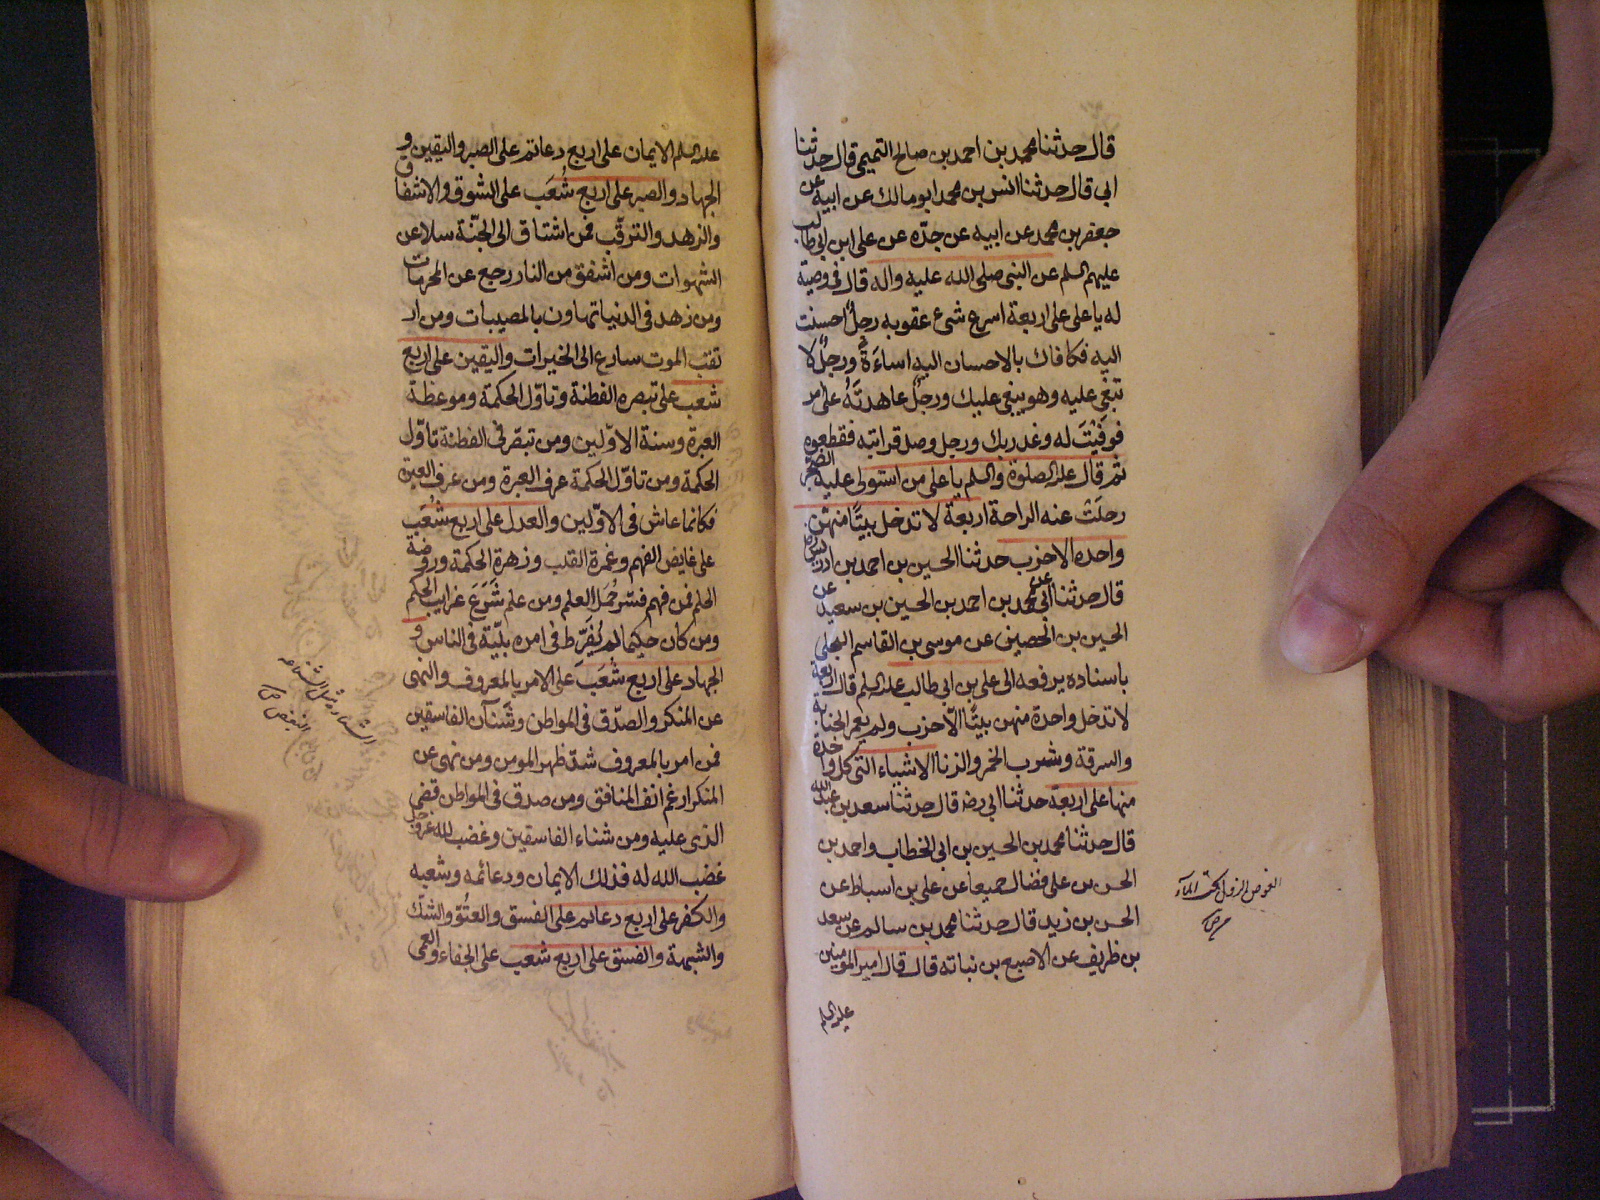 قال حدثنا محمد بن احمد بن صالح التميمى قال حدثنا
ابى قال حدثنا انس بن محمد ابو مالك عن ابيه عن
جعفر بن محمد عن ابيه عن جده عن على ابن ابى طالب
عليهم السلم عن النبى صلى الله عليه واله قال فى وصية
له يا على على اربعة اسرع شئ عقوبه رجل احسنت
اليه فكافاك بالاحسان اليه اساءة ورجل لا
تبغى عليه وهو يبغى عليك ورجل عاهدته على امر
فوفيت له وغدر بك ورجل وصل قرابته فقطعوه
ثم قال عليه الصلوة والسلم يا على من استولى عليه الضجر
رحلت عنه الراحة اربعة لا تدخل بيتا منهن
واحده الا خرب حدثنا الحسين بن احمد بن ادريس ره
قال حدثنا ابى عن محمد بن احمد بن الحسين بن سعيد عن
الحسين بن الحصين عن موسى بن القاسم البجلى
باسناده يرفعه الى على بن ابى طالب عليه السلم قال اربعة
لا تدخل واحدة منهن بيتا الا خرب ولم يعمر الخيانة
والسرقة وشرب الخمر والزنا الاشياء التى كل واحدة
منها على اربعة حدثنا ابى رضه قال حدثنا سعد بن عبد الله
قال حدثنا محمد بن الحسين بن ابى الخطاب واحمد بن
الحسن بن على فضال جميعا عن على بن اسباط عن
الحسن بن زيد قال حدثنا محمد بن سالم عن سعد
بن ظريف عن الاصبغ بن نباته قال قال امير المؤمنين
عليه السلم
الغوص النزول تحت الماء
ص
عليه السلم الايمان على اربع دعائم على الصبر واليقين و
الجهاد والصبر على اربع شعب على الشوق والاشفاق
والزهد والترقب فمن اشتاق الى الجنة سلا عن
الشهوات ومن اشفق من النار رجع عن المحرمات
ومن زهد فى الدنيا تهاون بالمصيبات ومن ار
تقب الموت سارع الى الخيرات واليقين على اربع
شعب على تبصره الفطنة وتاول الحكمة وموعظة
العبرة وسنة الاولين ومن تبصر فى الفطنة تاول
الحكمة ومن تاول الحكمة عرف العبرة ومن عرف العبرة
فكانما عاش فى الاولين والعدل على اربع شعب
على غايض الفهم وغمرة القلب وزهرة الحكمة وروضة
الحلم فمن فهم فسر جمل العلم ومن علم شرع غرايب الحكم
ومن كان حكيما لم يفرط فى امره بليّة فى الناس و
الجهاد على اربع شعب على الامر بالمعروف والنهى
عن المنكر والصدق فى المواطن وشنآن الفاسقين
فمن امر بالمعروف شد ظهر المومن ومن نهى عن
المنكر ارغم انف المنافق ومن صدق فى المواطن قضى
الذى عليه ومن شناء الفاسقين وغضب لله عز وجل
غضب الله له فذلك الايمان ودعائمه وشعبه
والكفر على اربع دعائم على الفسق والعتو والشك
والشبهة والفسق على اربع شعب على الجفاء والعمى
البغض ص